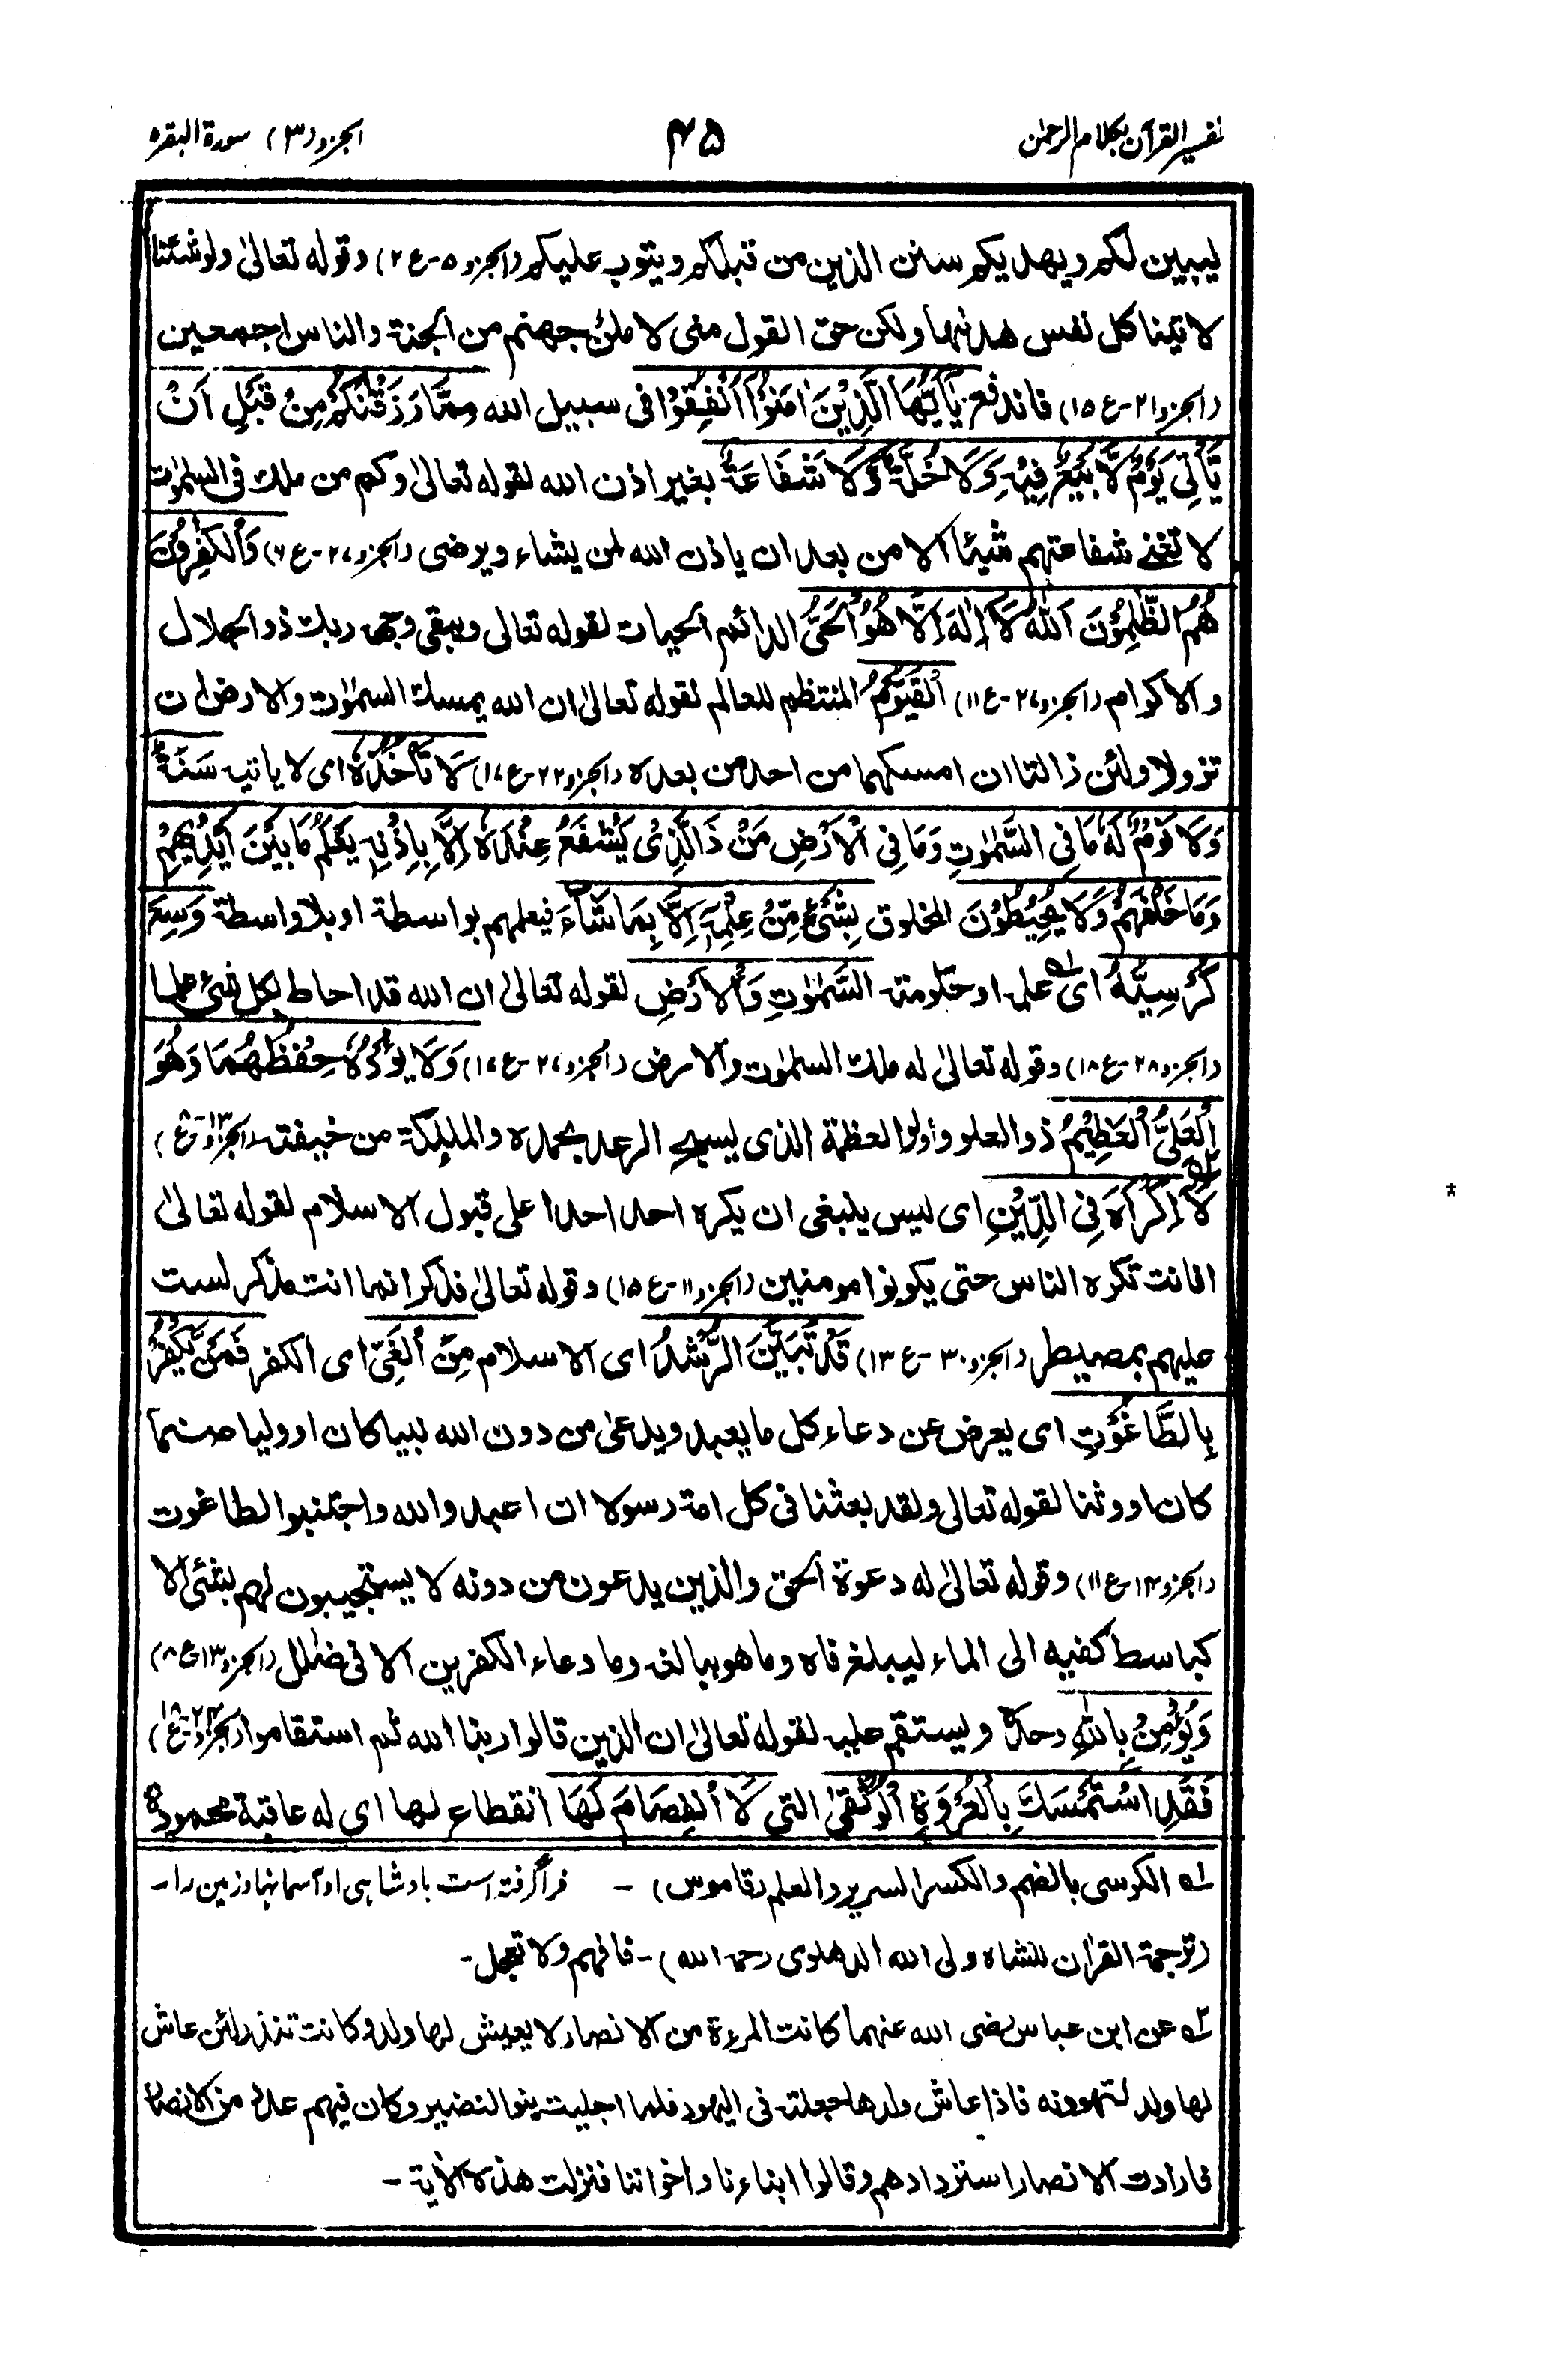 تفسير القرآن بكلام الرحمٰن ۴۵ الجزو (۳) سورة البقره
ليبين لكم ويهديكم سنن الذين من قبلكم ويتوب عليكم (الجزو ۵-ع ۲) وقوله تعالىٰ ولو شئنا
لاتينا كل نفس هدٰىها ولكن حق القول منى لاملئن جهنم من الجنة والناس اجمعين
(الجزو ۲۱-ع ۱۵) فاندفع يٰۤاَيُّهَا الَّذِيْنَ اٰمَنُوْۤا اَنْفِقُوْا فى سبيل الله مِمَّا رَزَقْنٰكُمْ مِنْ قَبْلِ اَنْ
يَّاْتِىَ يَوْمٌ لَّا بَيْعٌ فِيْهِ وَلَا خُلَّةٌ وَّلَا شَفَاعَةٌ بغير اذن الله لقوله تعالىٰ وكم من ملك فى السمٰوٰت
لا تغنى شفاعتهم شيئا الا من بعد ان ياذن الله لمن يشاء ويرضى (الجزو ۲۷-ع ۶) وَالْكٰفِرُوْنَ
هُمُ الظّٰلِمُوْنَ اَللّٰهُ لَاۤ اِلٰهَ اِلَّا هُوَ اَلْحَىُّ الدائم الحيات لقوله تعالى ويبقى وجه ربك ذو الجلال
والاكرام (الجزو ۲۷-ع ۱۱) اَلْقَيُّوْمُ المنتظم للعالم لقوله تعالىٰ ان الله يمسك السمٰوٰت والارض ان
تزولا ولئن زالتا ان امسكهما من احد من بعده (الجزو ۲۲-ع ۱۷) لَا تَاْخُذُهٗ اى لا ياتيه سِنَةٌ
وَلَا نَوْمٌ لَهٗ مَا فِى السَّمٰوٰتِ وَمَا فِى الْاَرْضِ مَنْ ذَا الَّذِىْ يَشْفَعُ عِنْدَهٗ اِلَّا بِاِذْنِهٖ يَعْلَمُ مَا بَيْنَ اَيْدِيْهِمْ
وَمَا خَلْفَهُمْ وَلَا يُحِيْطُوْنَ المخلوق بِشَىْءٍ مِّنْ عِلْمِهٖۤ اِلَّا بِمَا شَآءَ فيعلمهم بواسطة او بلا واسطة وَسِعَ
كُرْسِيُّهُ اى علمه او حكومته السَّمٰوٰتِ وَالْاَرْضِ لقوله تعالىٰ ان الله قد احاط بكل شئ علما
(الجزو ۲۸-ع ۱۸) وقوله تعالىٰ له ملك السمٰوٰت والارض (الجزو ۲۷-ع ۱۷) وَلَا يَؤُدُهٗ حِفْظُهُمَا وَهُوَ
الْعَلِىُّ الْعَظِيْمُ ذو العلو واولو العظمة الذى يسبح الرعد بحمده والملٰئكة من خيفته (الجزو ۱۳-ع ۸)
لَاۤ اِكْرَاهَ فِى الدِّيْنِ اى ليس ينبغى ان يكره احد احدا على قبول الاسلام لقوله تعالىٰ
افانت تكره الناس حتى يكونوا مومنين (الجزو ۱۱-ع ۱۵) وقوله تعالىٰ فذكر انما انت مذكر لست
عليهم بمصيطر (الجزو ۳۰-ع ۱۳) قَدْ تَّبَيَّنَ الرُّشْدُ اى الاسلام مِنَ الْغَىِّ اى الكفر فَمَنْ يَّكْفُرْ
بِالطَّاغُوْتِ اى يعرض عن دعاء كل ما يعبد ويدعىٰ من دون الله نبيا كان او وليا صنما
كان او وثنا لقوله تعالى ولقد بعثنا فى كل امة رسولا ان اعبدوا الله واجتنبوا الطاغوت
(الجزو ۱۴-ع ۱۱) وقوله تعالىٰ له دعوة الحق والذين يدعون من دونه لا يستجيبون لهم بشئ الا
كباسط كفيه الى الماء ليبلغ فاه وما هو ببالغه وما دعاء الكٰفرين الا فى ضلٰل (الجزو ۱۳ ع ۸)
وَيُؤْمِنْ بِاللّٰهِ وحده ويستقم عليه لقوله تعالىٰ ان الذين قالوا ربنا الله ثم استقاموا (الجزو ۲۴-ع ۱۸)
فَقَدِ اسْتَمْسَكَ بِالْعُرْوَةِ الْوُثْقٰى التى لَا انْفِصَامَ لَهَا انقطاع لها اى له عاقبة محمودة
له الكرسى بالضم والكسر السرير والعلم (قاموس) - فراگرفته است بادشاہی او آسمانها و زمین را-
(ترجمة القراٰن للشاه ولى الله الدهلوى رحمه الله) - فافهم ولا تعجل-
٢ه عن ابن عباس رضى الله عنهما كانت المرءة من الانصار لا يعيش لها ولد وكانت تنذر لئن عاش
لها ولد لتهودنه فاذا عاش ولدها جعلته فى اليهود فلما اجليت بنو النضير وكان فيهم عدد من الانصار
فارادت الانصار استردادهم وقالوا ابناءنا واخواننا فنزلت هذه الاٰية -
*